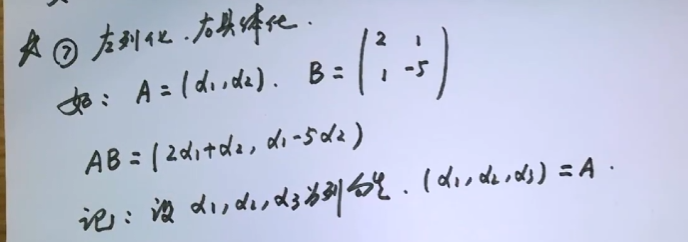 ☆ ⑦ 左列化.右具体化.
如: A=(α₁,α₂). B=(2 1
1 -5)
AB=(2α₁+α₂, α₁-5α₂)
记: 设 α₁,α₂,α₃为列向量. (α₁,α₂,α₃)=A.